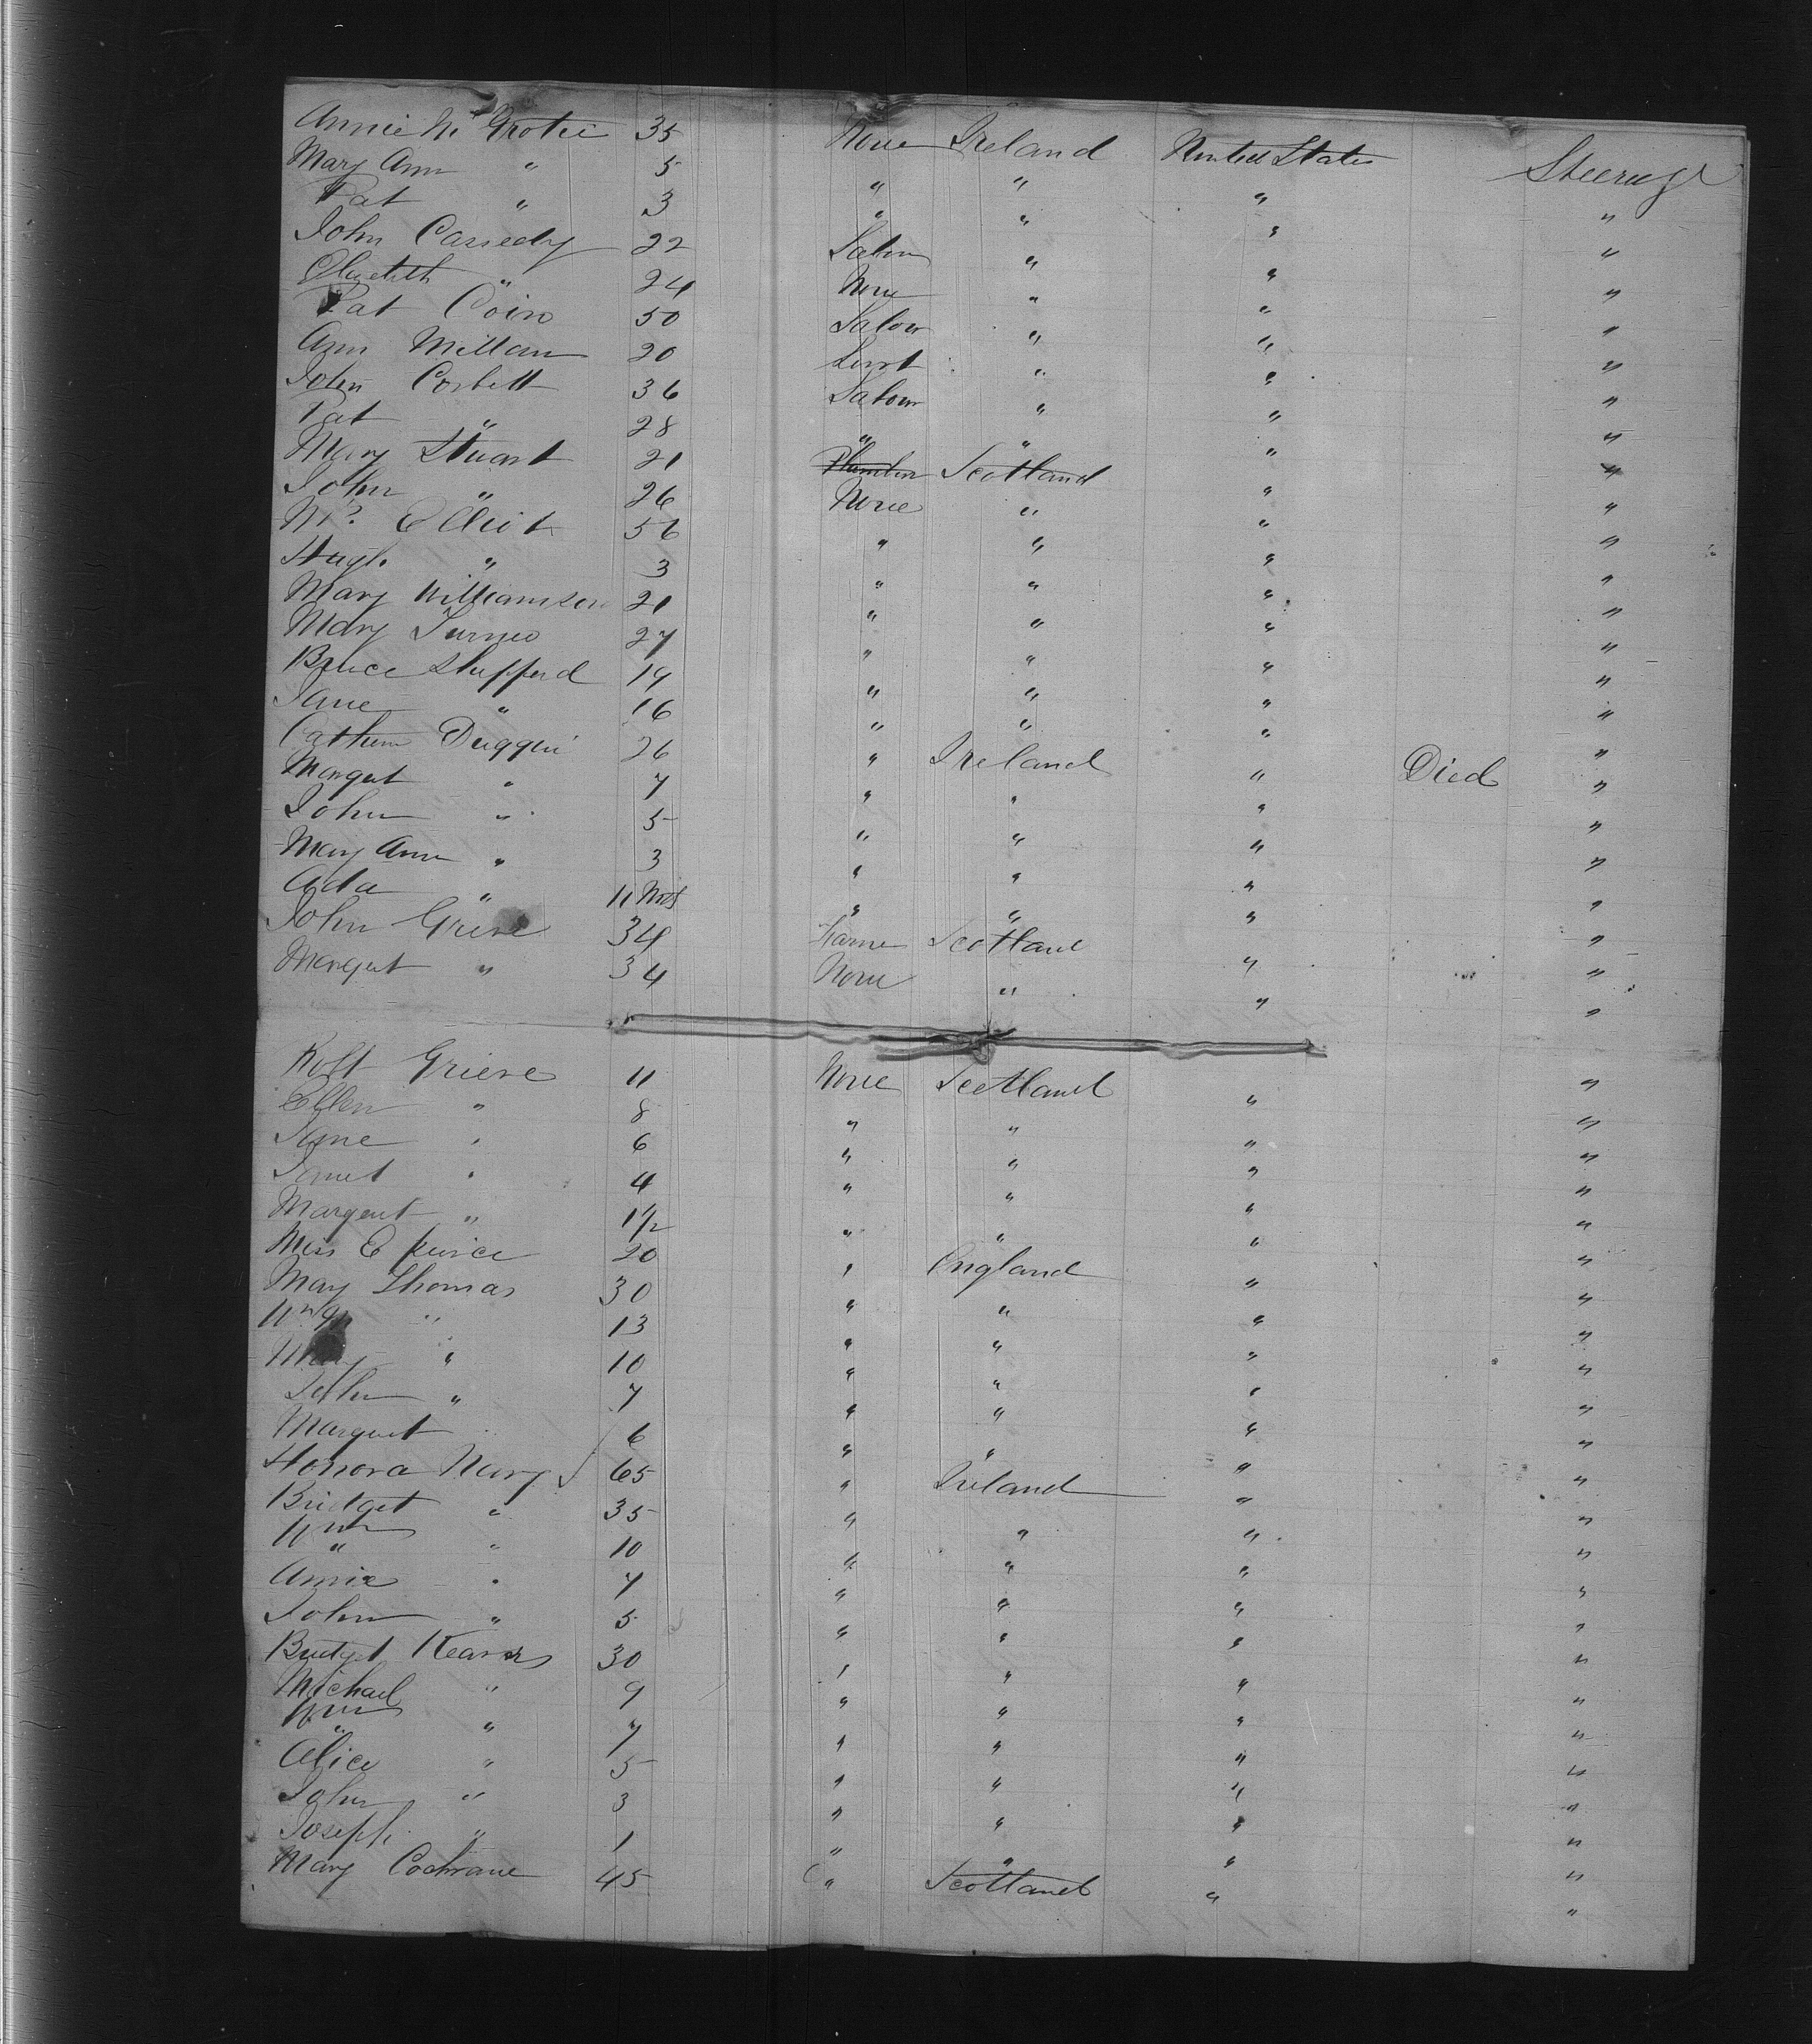 Annie Mc Grotie 35 None Ireland United States Steerage
Mary Ann " 5 " " " "
Pat " 3 " " " "
John Cassedy 22 Labour " " "
Elizabeth " 24 None " " "
Pat Coin 50 Labour " " "
Ann Millan 20 Servt " " "
John Corbett 36 Labour " " "
Pat " 28 " " " "
Mary Stuart 21 Plumber Scotland " "
John " 26 None " " "
Mrs Elliot 56 " " " "
Hugh " 3 " " " "
Mary Williamson 21 " " " "
Mary 27 " " " "
Bruce Shepperd 19 " " " "
Jane " 16 " " " "
Duggin 26 " Ireland " Died "
Margut " 7 " " " "
John " 5 " " " "
Mary Ann " 3 " " " "
Ada " 11 Mos " " " "
John Grieve 34 Farme Scotland " "
Margut " 34 None " " "
Robt Grieve 11 None Scotland " "
Ellen " 8 " " " "
Jane " 6 " " " "
Janet " 4 " " " "
Margaret " 1 1/2 " " " "
Miss E 20 " England " "
Mary Thomas 30 " " " "
" 13 " " " "
Mary " 10 " " " "
John " 7 " " " "
Margaret " 6 " " " "
Honora Nary 65 " Ireland " "
Bridget " 35 " " " "
Wm " 10 " " " "
Annie " 7 " " " "
John " 5 " " " "
Bridget 30 " " " "
Michael " 9 " " " "
Wm " 7 " " " "
Alice " 5 " " " "
John " 3 " " " "
Joseph " 1 " " " "
Mary Cochrane 45 " Scotland " "